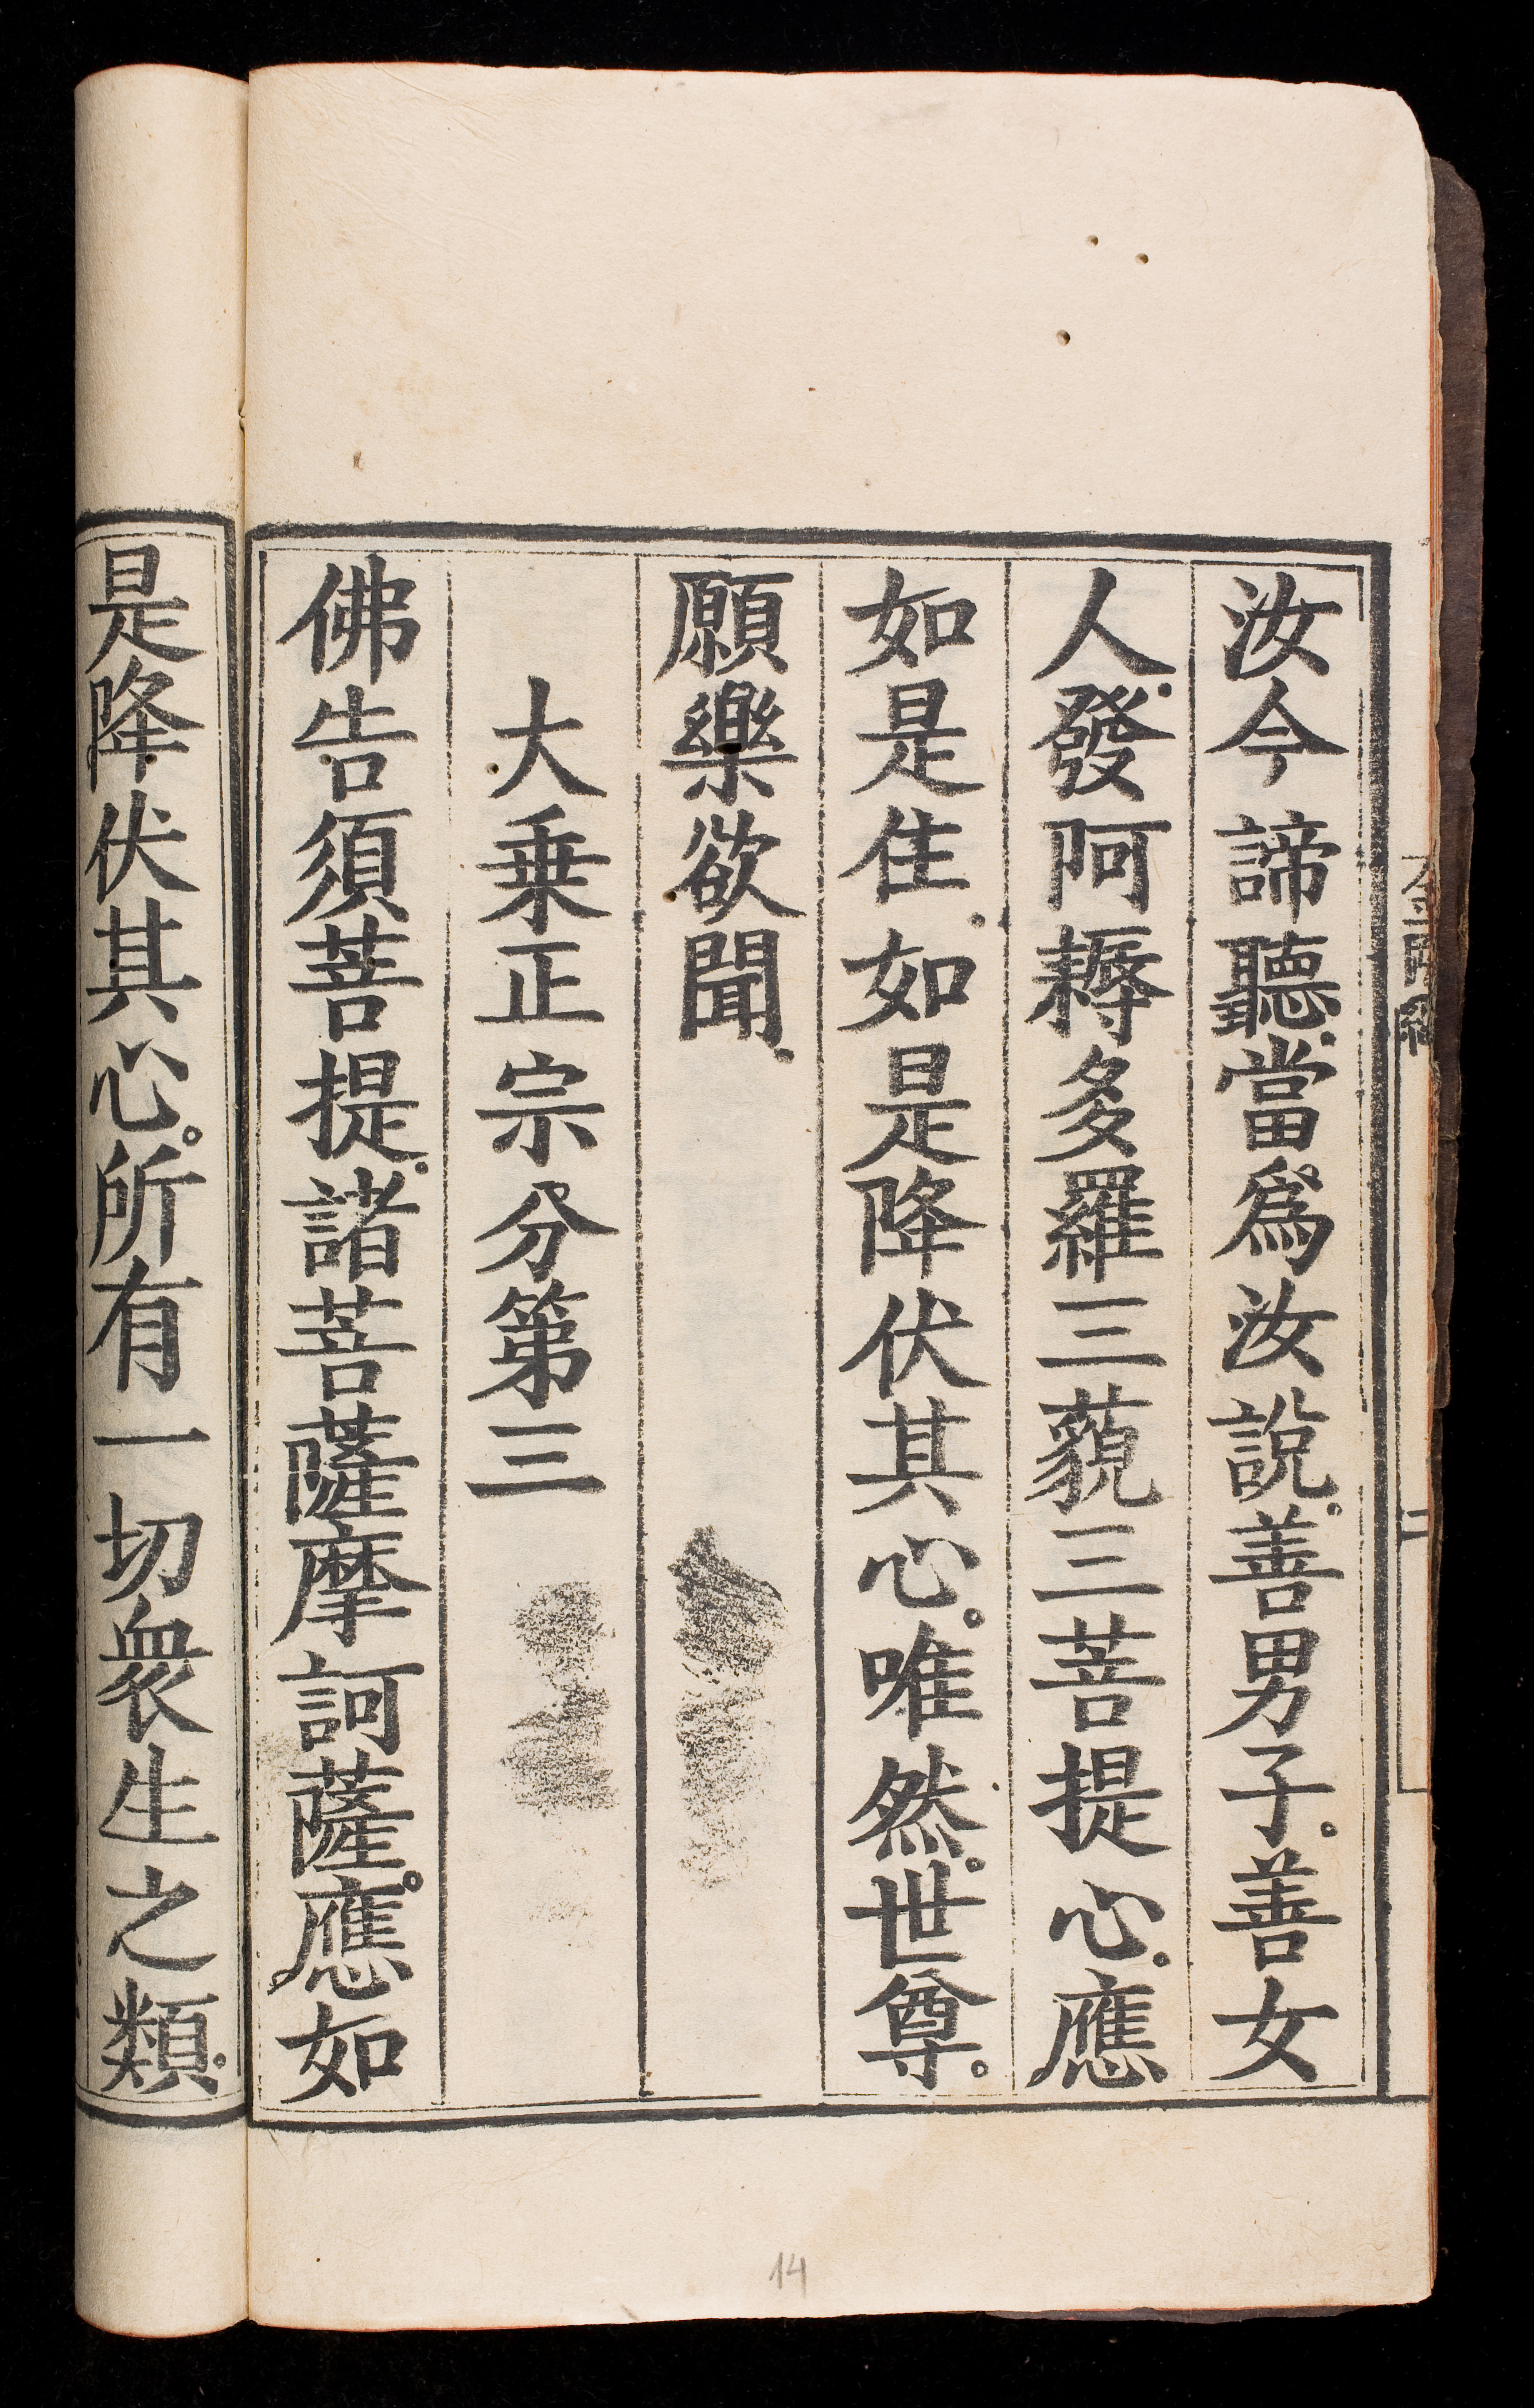 汝今諦聽當爲汝說善男子善女
人發阿耨多羅三藐三菩提心應
如是住如是降伏其心唯然世尊
願樂欲聞
大乗正宗分第三
佛告須菩提諸菩薩摩訶薩應如
是降伏其心所有一切衆生之類
14